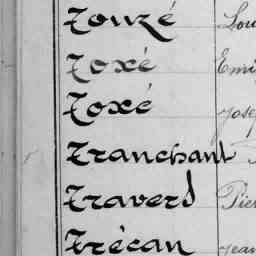 Touzé Lou
Toxé Emi
Toxé Jose
Tranchant
Traverd Pier
Trécan Jean